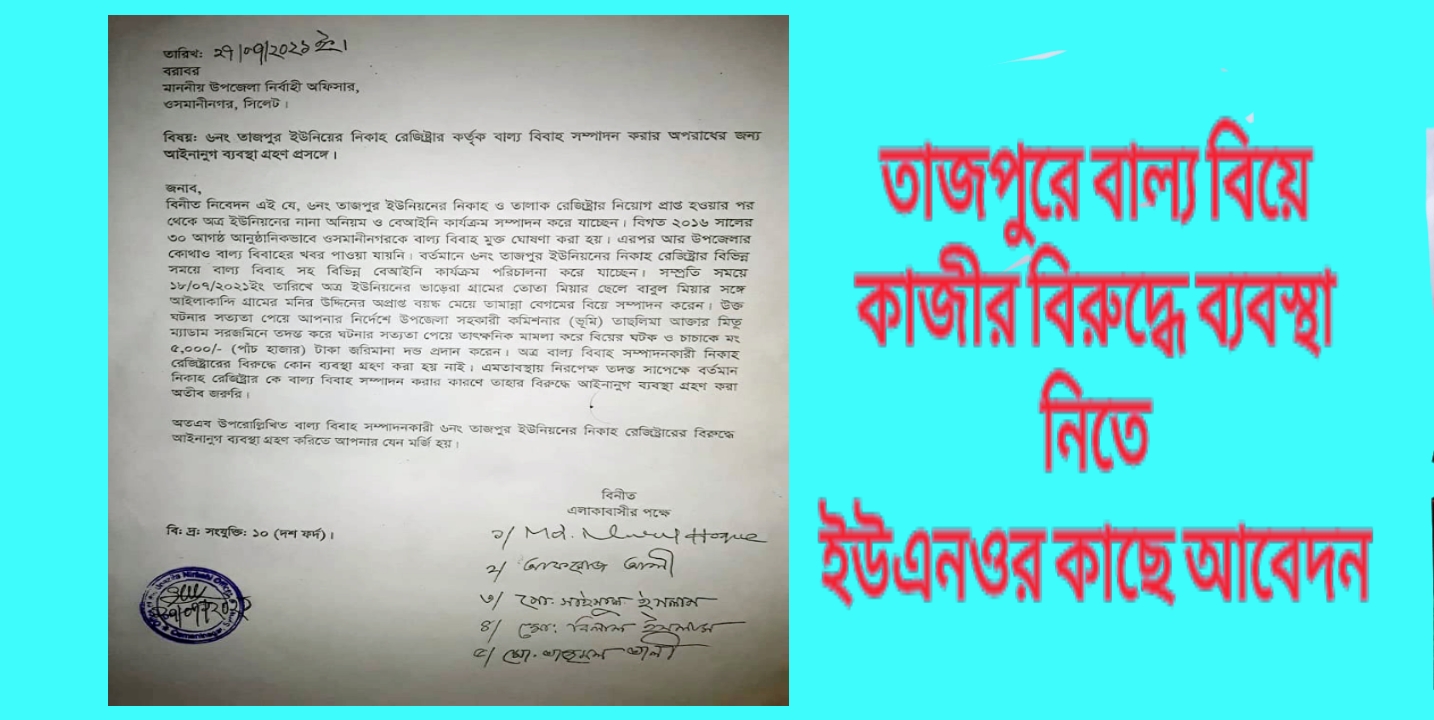 তারিখ: ২৭/০৭/২০২১ ইং।
বরাবর
মাননীয় উপজেলা নির্বাহী অফিসার,
ওসমানীনগর, সিলেট।
বিষয়: ৬নং তাজপুর ইউনিয়ের নিকাহ রেজিষ্ট্রার কর্তৃক বাল্য বিবাহ সম্পাদন করার অপরাধের জন্য
আইনানুগ ব্যবস্থা গ্রহণ প্রসঙ্গে।
জনাব,
বিনীত নিবেদন এই যে, ৬নং তাজপুর ইউনিয়নের নিকাহ ও তালাক রেজিষ্ট্রার নিয়োগ প্রাপ্ত হওয়ার পর
থেকে অত্র ইউনিয়নের নানা অনিয়ম ও বেআইনি কার্যক্রম সম্পাদন করে যাচ্ছেন। বিগত ২০১৬ সালের
৩০ আগষ্ঠ আনুষ্ঠানিকভাবে ওসমানীনগরকে বাল্য বিবাহ মুক্ত ঘোষণা করা হয়। এরপর আর উপজেলার
কোথাও বাল্য বিবাহের খবর পাওয়া যায়নি। বর্তমানে ৬নং তাজপুর ইউনিয়নের নিকাহ রেজিষ্ট্রার বিভিন্ন
সময়ে বাল্য বিবাহ সহ বিভিন্ন বেআইনি কার্যক্রম পরিচালনা করে যাচ্ছেন। সম্প্রতি সময়ে
১৮/০৭/২০২১ইং তারিখে অত্র ইউনিয়নের ভাড়েরা গ্রামের তোতা মিয়ার ছেলে বাবুল মিয়ার সঙ্গে
আইলাকান্দি গ্রামের মনির উদ্দিনের অপ্রাপ্ত বয়ষ্ক মেয়ে তামান্না বেগমের বিয়ে সম্পাদন করেন। উক্ত
ঘটনার সত্যতা পেয়ে আপনার নির্দেশে উপজেলা সহকারী কমিশনার (ভূমি) তাহলিমা আক্তার মিতু
ম্যাডাম সরজমিনে তদন্ত করে ঘটনার সত্যতা পেয়ে তাৎক্ষনিক মামলা করে বিয়ের ঘটক ও চাচাকে মং
৫,০০০/- (পাঁচ হাজার) টাকা জরিমানা দন্ড প্রদান করেন। অত্র বাল্য বিবাহ সম্পাদনকারী নিকাহ
রেজিষ্ট্রারের বিরুদ্ধে কোন ব্যবস্থা গ্রহণ করা হয় নাই। এমতাবস্থায় নিরপেক্ষ তদন্ত সাপেক্ষে বর্তমান
নিকাহ রেজিষ্ট্রার কে বাল্য বিবাহ সম্পাদন করার কারণে তাহার বিরুদ্ধে আইনানুগ ব্যবস্থা গ্রহণ করা
অতীব জরুরি।
অতএব উপরোল্লিখিত বাল্য বিবাহ সম্পাদনকারী ৬নং তাজপুর ইউনিয়নের নিকাহ রেজিষ্ট্রারের বিরুদ্ধে
আইনানুগ ব্যবস্থা গ্রহণ করিতে আপনার যেন মর্জি হয়।
বিনীত
এলাকাবাসীর পক্ষে
বি: দ্র: সংযুক্তি: ১০ (দশ ফর্দ)।
১/ Md. Nurul Hoque
২/ আফরোজ আলী
৩/ মো: ইসলাম
৪/ মো: বিলাল ইসলাম
৫/ মো. আলী
তাজপুরে বাল্য বিয়ে
কাজীর বিরুদ্ধে ব্যবস্থা
নিতে
ইউএনওর কাছে আবেদন